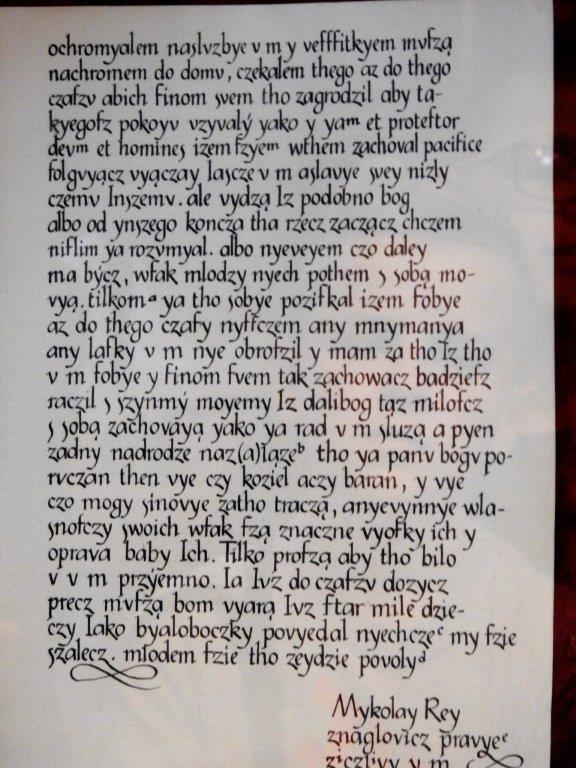 ochromyalem naslvzbye v m y vefffitkyem mvfzą
nachromem do domv, czekalem thego az do thego
czafzv abich finom svem tho zagrodzil aby ta-
kyegofz pokoyv vzyvalÿ yako y yaᵐ et proteftor
devᵐ et homines izem fzyeᵐ wthem zachoval pacifice
folgvyącz vyączay lascze v m aslavye svey nizly
czemv Inszemv. ale vydzą Iz podobno bog
albo od ynszego koncza tha rzecz zaczącz chczem
niflim ya rozvmyal. albo nyeveyem czo daley
ma bycz, wfak mlodzy nyech pothem s sobą mo-
vyą. tilkomᵃ ya tho sobye pozifkal izem fobye
az do thego czafy nyffczem any mnymanya
any lafky v m nye obrofzil y mam za tho Iz tho
v m fobye y finom fvem tak zachowacz badziefz
raczil s szynmy moyemy Iz dalibog taz milofcz
s sobą zachovaya yako ya rad v m sluzą a pyen
zadny nadrodze naz(a)lązęᵇ tho ya panv bogv po-
rvczan then vye czy koziel aczy baran, y vye
czo mogy sinovye zatho traczą, anyevynnye wla-
snofczy swoich wfak fzą znaczne vyofky ich y
oprava baby Ich. Tilko profzą aby tho bilo
v v m przyemno. Ia Ivz do czafzv dozycz
precz mvfzą bom vyarą Ivz ftar mile dzie-
czy Iako byaloboczky povyedal nyechczęᶜ my fzie
szalecz. młodem fzie tho zeydzie povolyᵈ
Mykolay Rey
znaglovicz pravyeᵉ
ziczlivy v m